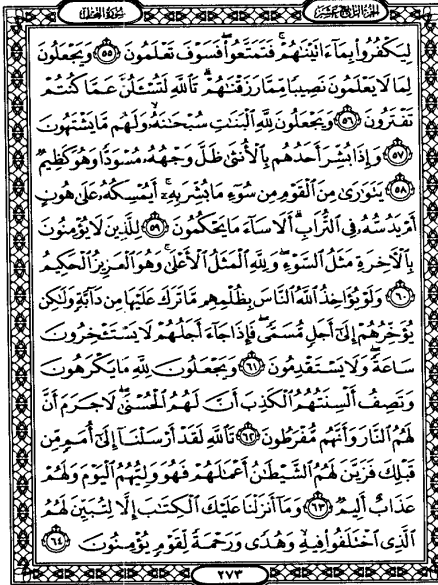 سُورَةُ النَّحْلِ
الجُزْءُ الرَّابِعَ عَشَرَ
لِيَكْفُرُوا۟ بِمَآ ءَاتَيْنَٰهُمْ ۚ فَتَمَتَّعُوا۟ ۖ فَسَوْفَ تَعْلَمُونَ ٥٥ وَيَجْعَلُونَ
لِمَا لَا يَعْلَمُونَ نَصِيبًا مِّمَّا رَزَقْنَٰهُمْ ۗ تَٱللَّهِ لَتُسْـَٔلُنَّ عَمَّا كُنتُمْ
تَفْتَرُونَ ٥٦ وَيَجْعَلُونَ لِلَّهِ ٱلْبَنَٰتِ سُبْحَٰنَهُۥ ۙ وَلَهُم مَّا يَشْتَهُونَ
٥٧ وَإِذَا بُشِّرَ أَحَدُهُم بِٱلْأُنثَىٰ ظَلَّ وَجْهُهُۥ مُسْوَدًّا وَهُوَ كَظِيمٌ
٥٨ يَتَوَٰرَىٰ مِنَ ٱلْقَوْمِ مِن سُوٓءِ مَا بُشِّرَ بِهِۦٓ ۚ أَيُمْسِكُهُۥ عَلَىٰ هُونٍ
أَمْ يَدُسُّهُۥ فِى ٱلتُّرَابِ ۗ أَلَا سَآءَ مَا يَحْكُمُونَ ٥٩ لِلَّذِينَ لَا يُؤْمِنُونَ
بِٱلْـَٔاخِرَةِ مَثَلُ ٱلسَّوْءِ ۖ وَلِلَّهِ ٱلْمَثَلُ ٱلْأَعْلَىٰ ۚ وَهُوَ ٱلْعَزِيزُ ٱلْحَكِيمُ
٦٠ وَلَوْ يُؤَاخِذُ ٱللَّهُ ٱلنَّاسَ بِظُلْمِهِم مَّا تَرَكَ عَلَيْهَا مِن دَآبَّةٍ وَلَٰكِن
يُؤَخِّرُهُمْ إِلَىٰٓ أَجَلٍ مُّسَمًّى ۖ فَإِذَا جَآءَ أَجَلُهُمْ لَا يَسْتَـْٔخِرُونَ
سَاعَةً ۖ وَلَا يَسْتَقْدِمُونَ ٦١ وَيَجْعَلُونَ لِلَّهِ مَا يَكْرَهُونَ
وَتَصِفُ أَلْسِنَتُهُمُ ٱلْكَذِبَ أَنَّ لَهُمُ ٱلْحُسْنَىٰ ۖ لَا جَرَمَ أَنَّ
لَهُمُ ٱلنَّارَ وَأَنَّهُم مُّفْرَطُونَ ٦٢ تَٱللَّهِ لَقَدْ أَرْسَلْنَآ إِلَىٰٓ أُمَمٍ مِّن
قَبْلِكَ فَزَيَّنَ لَهُمُ ٱلشَّيْطَٰنُ أَعْمَٰلَهُمْ فَهُوَ وَلِيُّهُمُ ٱلْيَوْمَ وَلَهُمْ
عَذَابٌ أَلِيمٌ ٦٣ وَمَآ أَنزَلْنَا عَلَيْكَ ٱلْكِتَٰبَ إِلَّا لِتُبَيِّنَ لَهُمُ
ٱلَّذِى ٱخْتَلَفُوا۟ فِيهِ ۙ وَهُدًى وَرَحْمَةً لِّقَوْمٍ يُؤْمِنُونَ ٦٤
٢٧٣